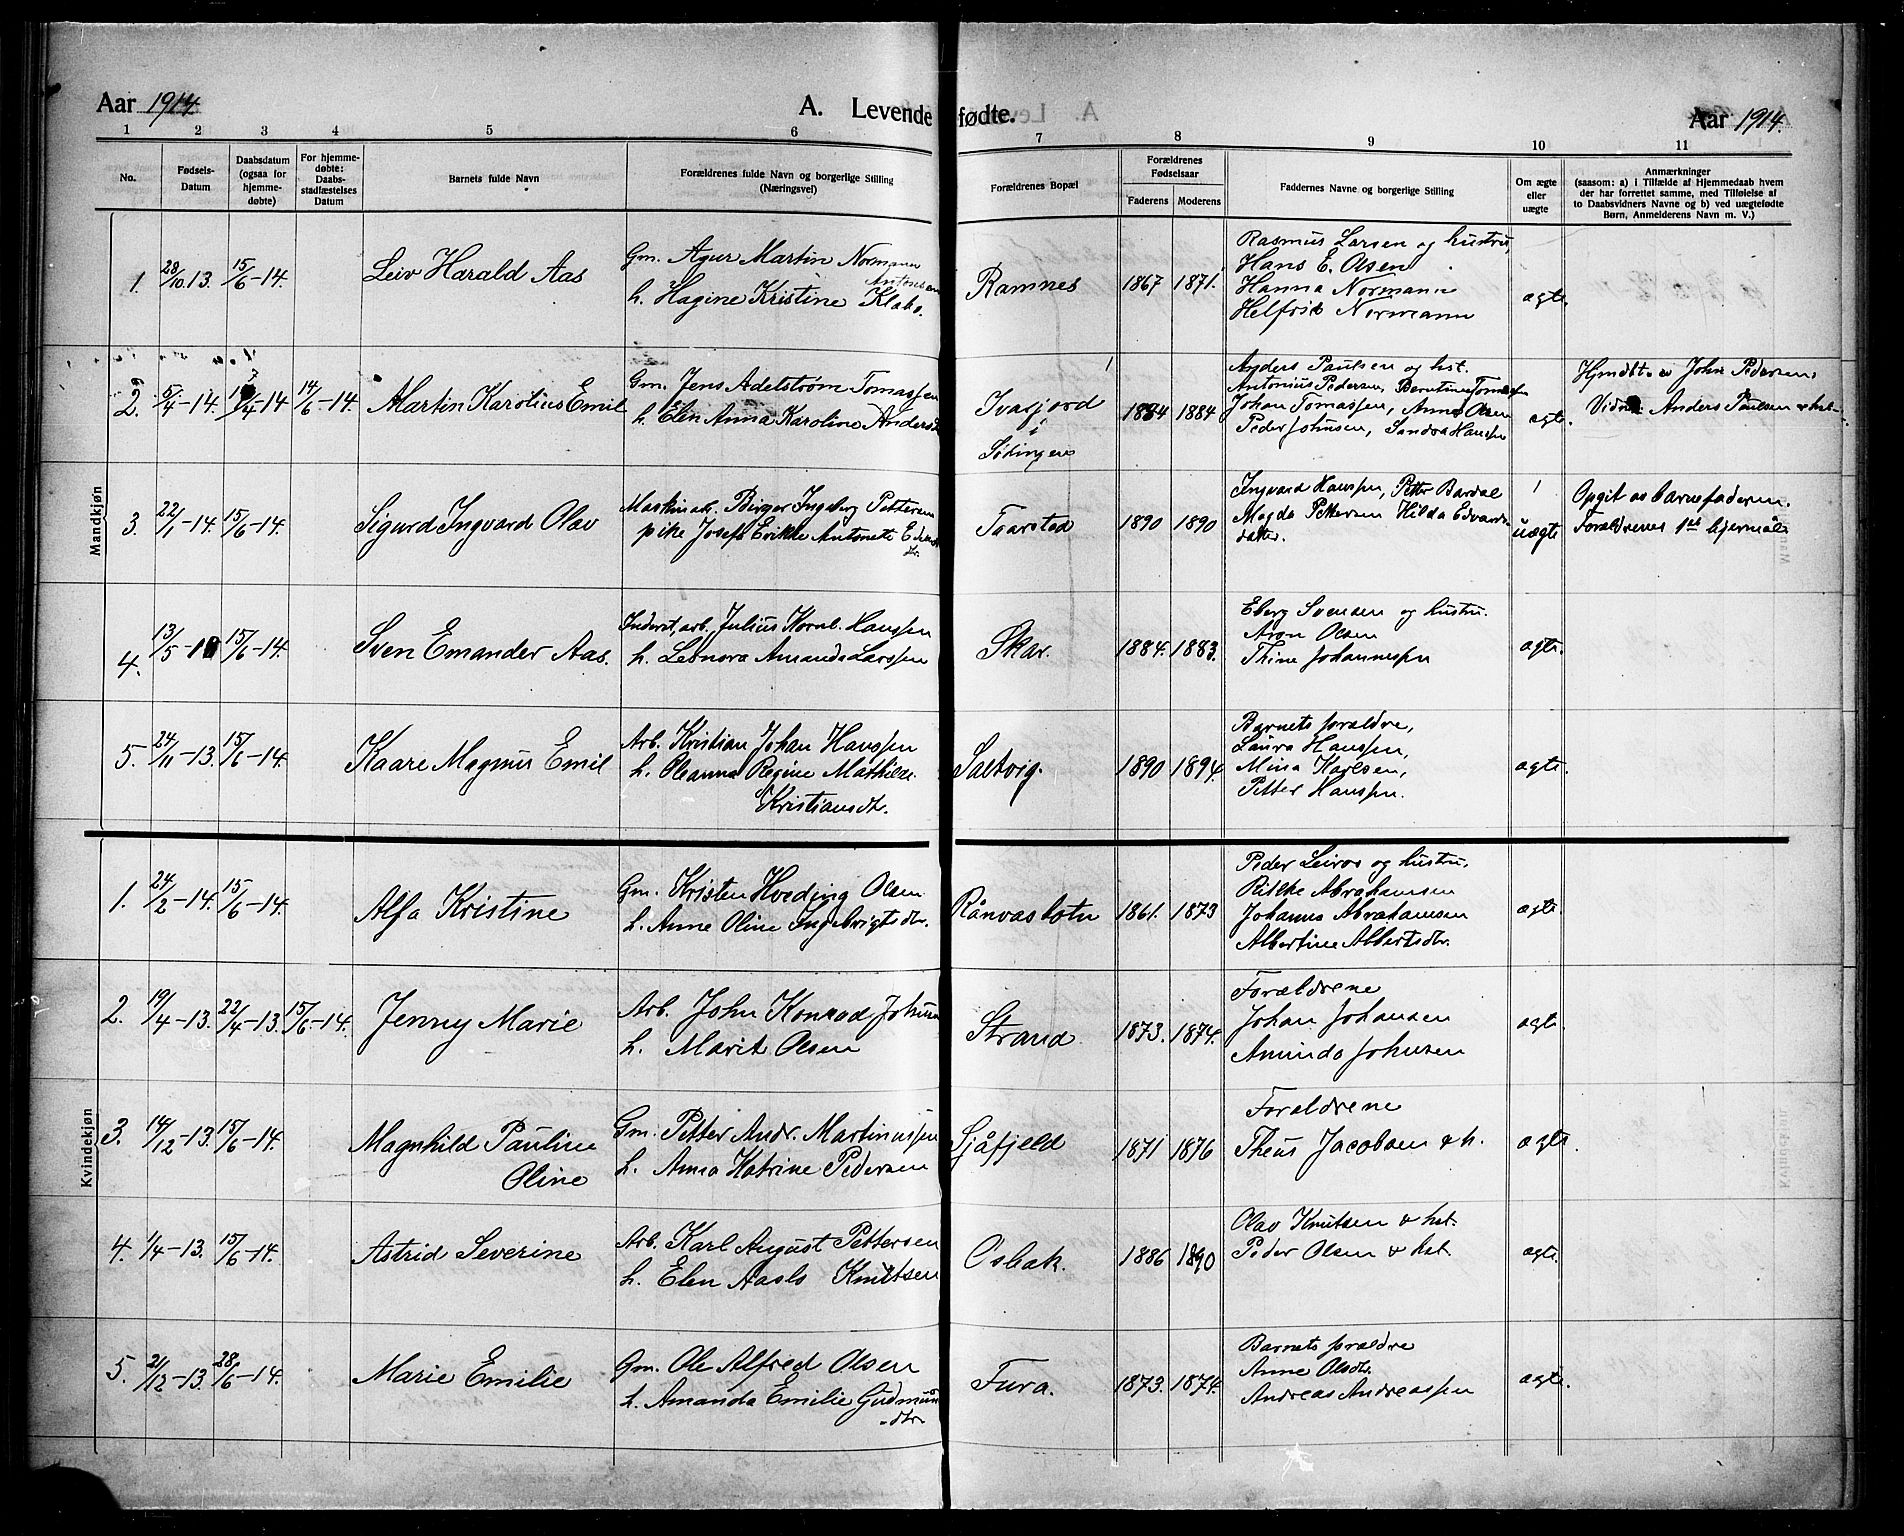 Aar 1914. A. Levende fødte. Aar 1914.
1 2 3 4 5 6 7 8 9 10 11
No. Fødsels-Datum Daabsdatum (ogsaa for hjemme-døbte) For hjemme-døbte: Daabs-stadfæstelses Datum Barnets fulde Navn Forældrenes fulde Navn og borgerlige Stilling (Næringsvei) Forældrenes Bopæl Forældrenes Fødselsaar Faderens Moderens Faddernes Navne og borgerlige Stilling Om ægte eller uægte Anmærkninger (saasom: a) i Tilfælde af Hjemmedaab hvem der har forrettet samme, med Tilføielse af to Daabsvidners Navne og b) ved uægtefødte Børn, Anmelderens Navn m. V.)
Mandkjøn
1. 28/10 13. 15/6-14. Leiv Harald Aas
Gm. Agur Martin Normann Antonsen
h. Hagine Kristine Klabo.
Ramnes 1867 1871.
Rasmus Larsen og hustru,
Hans E. Olsen
Hanna Normann
Helfrid Normann
ægte.
2. 5/4-14. /4-14 14/6-14. Martin Karolius Emil
Gm. Jens Adelstrøm Tomassen
h. Elen Anna Karoline Andersd.
Ivasfjord i Lødingen 1884 1884
Anders Paulsen og hst.
Antonius Pedersen, Berntine Tomassen
Johan Tomassen, Anna Olsen
Peder Johnsen, Sandra Hanssen
ægte.
Hjmdbt. av John Pedersen,
Vidner Anders Paulsen & hst.
3. 22/1-14. 15/6-14. Sigurd Ingvard Olav
Maskinarb. Birger Ingeberg Pettersen
pike Josefe Erikke Antonette Edvardsdtr.
Taarstad 1890 1890
Ingvard Hanssen, Petter Bardal
Magda Pettersen Hilda Edvards
datter.
uægte
Opgit as barnefaderen.
Forældrenes 1ste leiermaal
4. 13/5-1 15/6-14. Sven Emander Aas.
Inderst, arb. Julius Kornl. Hanssen
h. Leonora Amanda Larssen
Skar. 1884. 1883.
Eberg Svensen og hustru.
Aron Olsen
Thine Johannessen
ægte.
5. 24/11-13. 15/6-14. Kaare Magnus Emil
Arb. Kristian Johan Hanssen
h. Oleanna Regine Mathilde
Kristiansdtr.
Saltvig. 1890 1894.
Barnets forældre,
Laura Hanssen,
Mina Karlsen,
Petter Hanssen.
ægte.
Kvindekjøn
1. 24/2-14. 15/6-14. Alfa Kristine
Gm. Kristen Hveding Olsen
h. Anne Oline Ingebrigtsdtr.
Rånvasbotn 1861. 1873
Peder Leiros og hustru,
Rikke Abrahamsen
Johannes Abrahamsen
Albertine Albertsdtr.
ægte.
2. 19/4-13. 22/4-13. 15/6-14. Jenny Marie
Arb. John Konrad Johnsen
h. Marit Olsen
Strand. 1873. 1874.
Forældrene
Johan Johansen
Aminda Johnsen
ægte.
3. 14/12-13. 15/6-14. Magnhild Pauline
Oline
Gm. Petter Andr. Martinussen
h. Anna Katrine Pedersen
Sjåfjeld 1871 1876
Forældrene
Theus Jacobsen & h.
ægte.
4. 1/4-13. 15/6-14. Astrid Severine
Arb. Karl August Pettersen
h. Elen Aasle Knutsen
Osbak. 1886 1890
Olav Knutsen & hst.
Peder Olsen & hst.
ægte.
5. 21/12-13. 28/6-14. Marie Emilie
Gm. Ole Alfred Olsen
h. Amanda Emilie Gudmunds
dtr.
Fura. 1873. 1874.
Barnets forældre
Anne Olsdtr.
Andreas Andreassen
ægte.